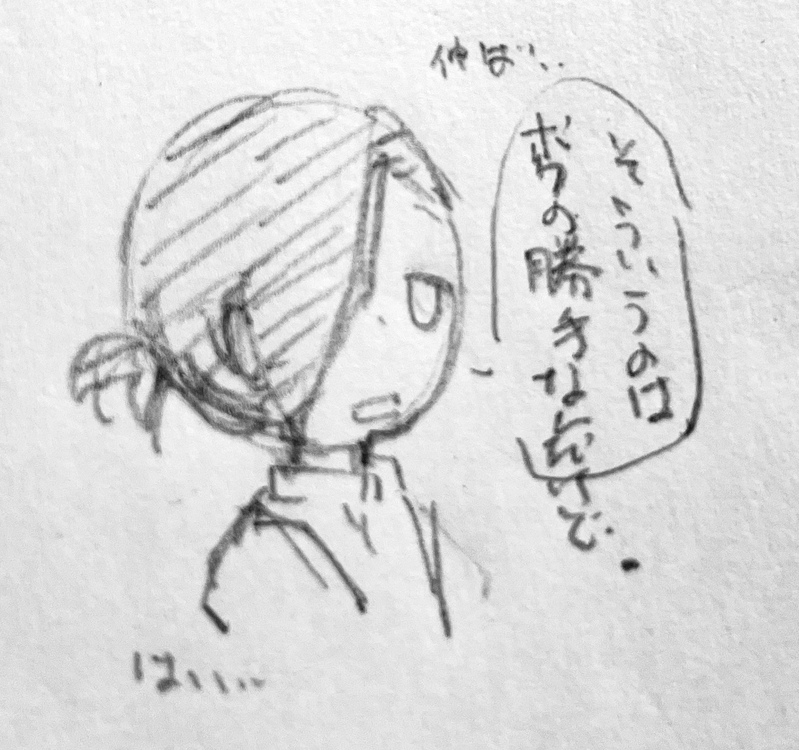 伸ば…
そういうのは
ボクの勝手なだけで.
は、、、、